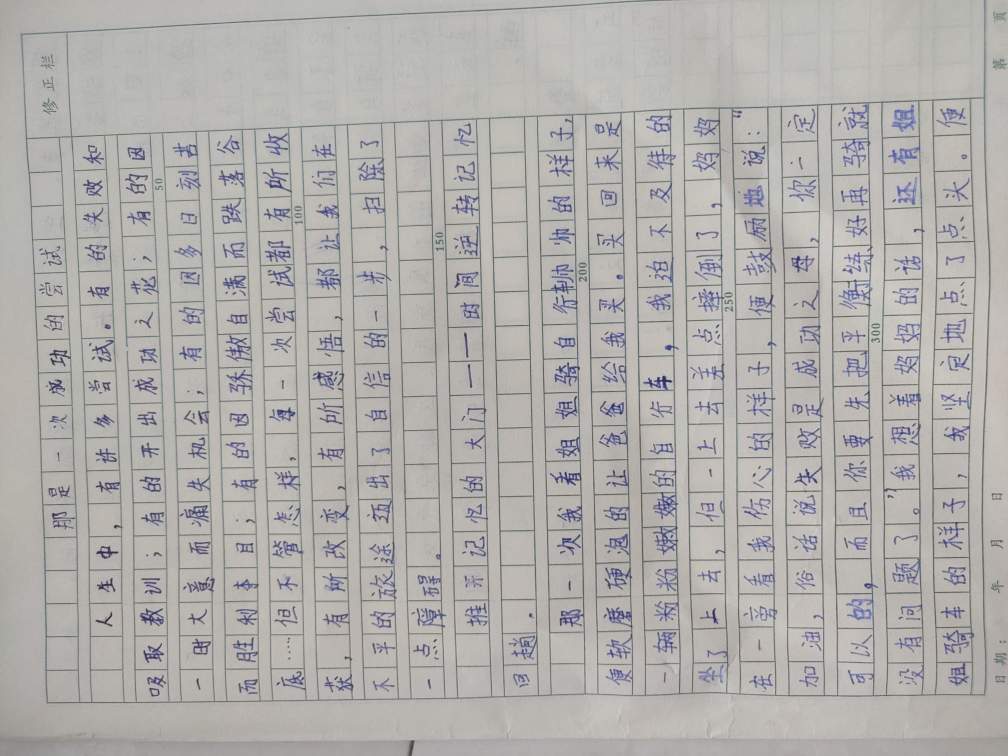 修正栏
那是一次成功的尝试
人生中，有许多尝试。有的失败和
吸取教训；有的开出成功之花；有的因
50
一时大意而痛失机会；有的因多日刻苦
而胜利多日；有的因骄傲自满而跌落谷
底……但不管怎样，每一次尝试都有所收
100
获，有所改变，有所感悟，都让我们在
不平的旅途迈出了自信的一步，扫除了
一点障碍。
150
推开记忆的大门——时间逆转记忆
回趟。
那一次我看姐姐骑自行帅帅的样子，
200
便软磨硬泡的让爸爸给我买。买回来是
一辆粉粉嫩嫩的自行车，我迫不及待的
坐了上去，但一上去差点摔倒了，妈妈
250
在一旁看我伤心的样子，便鼓励地说：“
加油，俗话说失败是成功之母，你一定
可以的，而且你要先把平衡练好再骑就
300
没有问题了。”我想着妈妈的话，还有姐
姐骑车的样子，我坚定地点了点头。便
日期： 年 月 日 第 页